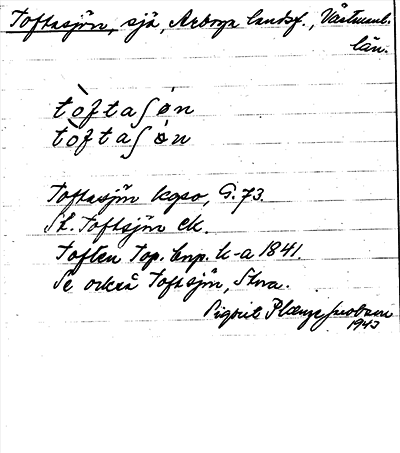 Toftasjön, sjö, Arboga landsf., Västmanl.
län.
tòftaʃøn
tòftaʃøn
Toftasjön kgso, G. 73.
St. Toftsjön ek.
Toften Top. corp. k-a 1841.
Se också Toftsjön, Stora.
1943